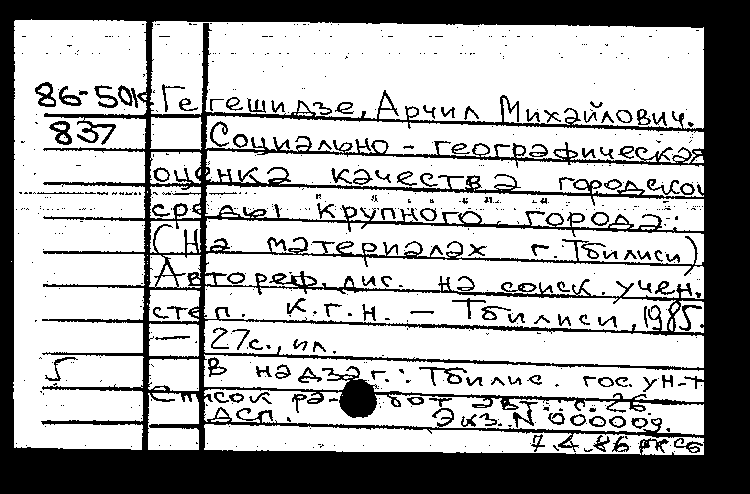 86-50к Гегешидзе, Арчил Михайлович.
837 Социально-географическая
оценка качества городской
среды крупного города:
(На материалах г. Тбилиси).
Автореф. дис. на соиск. учен.
степ. к.г.н. — Тбилиси, 1985.
— 27с., ил.
5 В надзаг.: Тбилис. гос. ун-т
Список работ авт.: с. 26.
ДСП. Экз. N 000009.
7.4.86